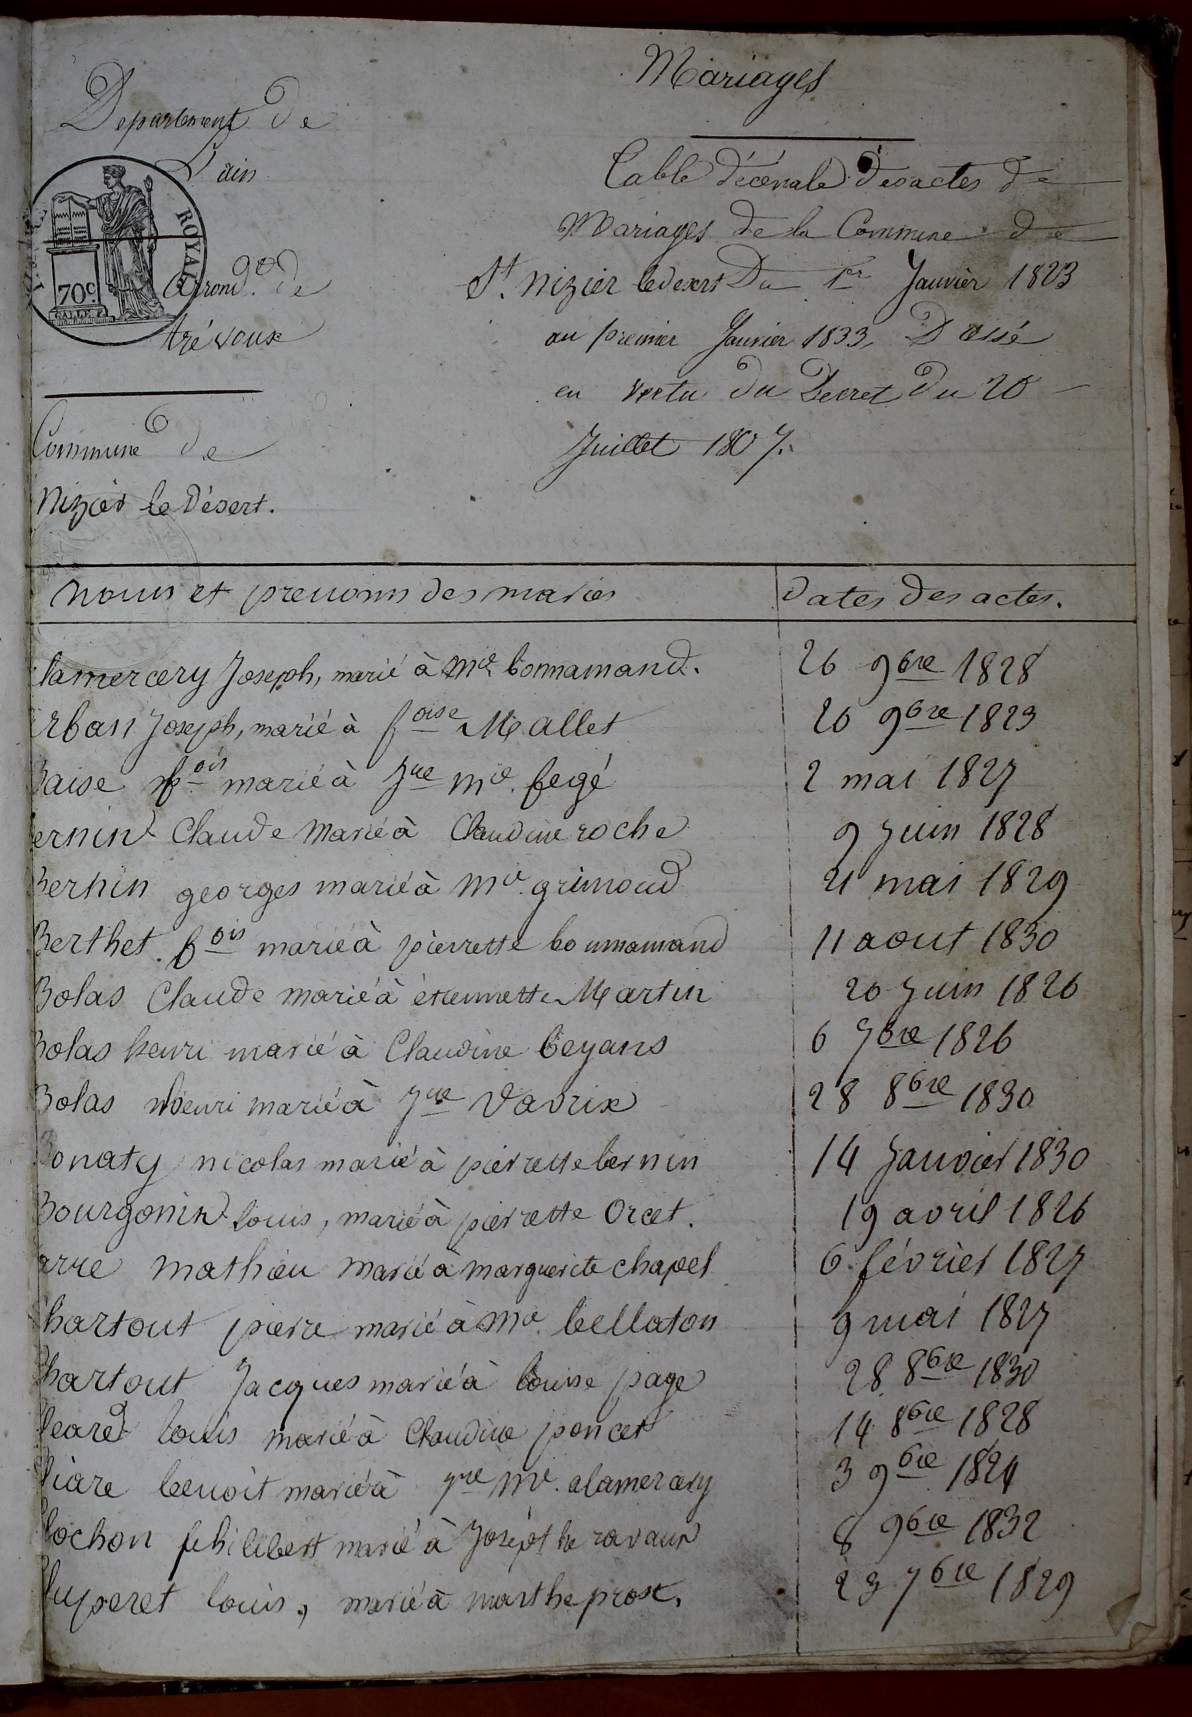 Mariages
Departement de
L'ain
ROYAL
70c
Arrond. de
trévoux
Commune de
Nizier le Désert.
Table décenale des actes de
Mariages de la Commune de
St. Nizier le desert Du 1er Janvier 1823
au premier Janvier 1833, Dressé
en vertu du Decret Du 20
Juillet 1807.
Noms et prenoms des mariés Dates des actes.
lamercery Joseph, marié à Mie bonnamand. 26 9bre 1828
rban Joseph, marié à foise Mallet 20 9bre 1823
Baise fois marié à Jne Mie fegé 2 mai 1827
ernin Claude Marié à Claudine roche 9 Juin 1828
Bernin georges marié à Mie grimoud 21 mai 1829
Berthet fois marié à pierrette bonnamand 11 aout 1830
Bolas Claude marié à étiennette Martin 20 Juin 1826
Bolas henri marié à Claudine beyans 6 7bre 1826
Bolas henri marié à Jne Vavrix 28 8bre 1830
Bonaty nicolas marié à pierrette bernin 14 Janvier 1830
Bourgonin Louis, marié à pierrette Orcet. 19 avril 1826
arre mathieu marié à marguerite chapel 6 févrièr 1827
hartout pierre marié à Mie bellaton 9 mai 1827
hartout Jacques marié à Louise page 28 8bre 1830
leard Louis marié à Claudine poncet 14 8bre 1828
liare benoit marié à Jne Mie alamercery 3 9bre 1824
lochon philibert marié à Joséphe ravaux 8 9bre 1832
luyperet Louis, marié à marthe prost. 23 7bre 1829